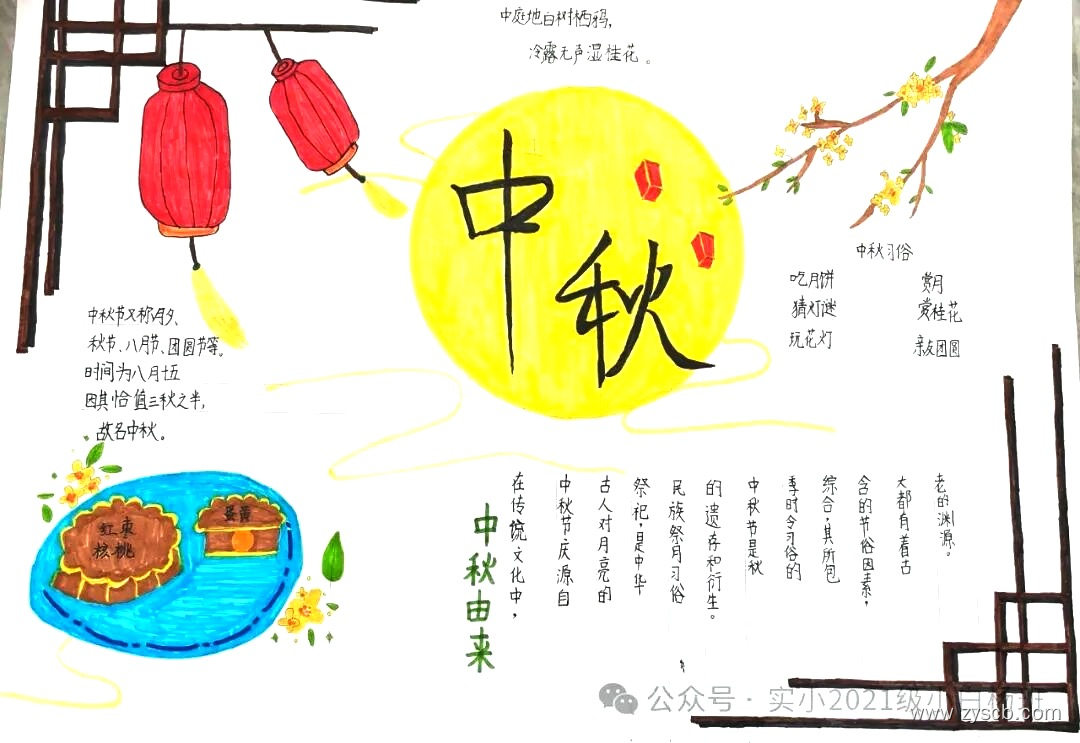 中庭地白树栖鸦,
冷露无声湿桂花。
中秋
中秋习俗
吃月饼
赏月
猜灯谜
赏桂花
玩花灯
亲友团圆
中秋节又称月夕、
秋节、八月节、团圆节等。
时间为八月十五
因其恰值三秋之半,
故名中秋。
红枣
核桃
蛋黄
中秋由来
在传统文化中,
中秋节庆源自
古人对月亮的
祭祀,是中华
民族祭月习俗
的遗存和衍生。
中秋节是秋
季时令习俗的
综合,其所包
含的节俗因素,
大都有着古
老的渊源。
公众号·实小2021级小白杨班
www.zyscb.com